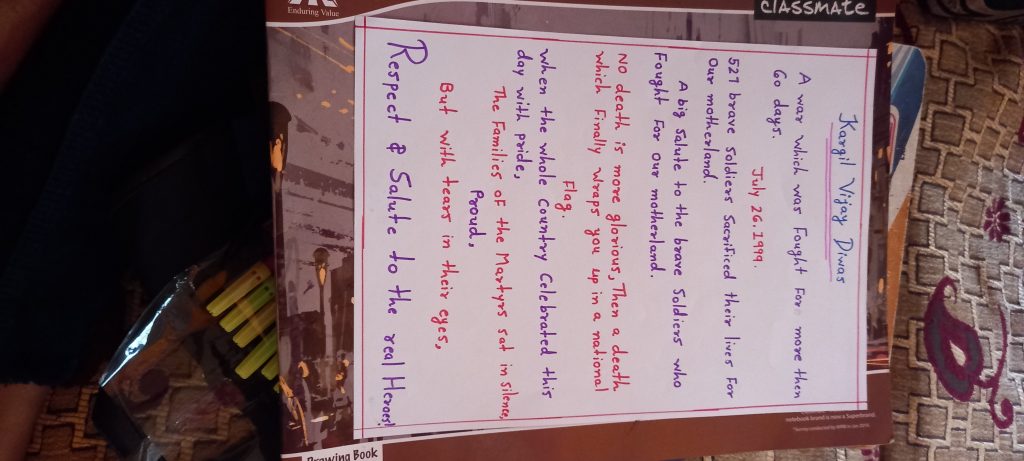 Enduring Value
CLASSMATE
Kargil Vijay Diwas
A war which was Fought For more then
60 days.
July 26.1999.
527 brave soldiers Sacrificed their lives For
Our motherland.
A big Salute to the brave Soldiers who
Fought For our motherland.
No death is more glorious, Then a death
which Finally wraps you up in a national
Flag.
when the whole Country Celebrated this
day with pride,
The Families of the Martyrs sat in silence,
Proud,
But with tears in their eyes,
Respect & Salute to the real Heroes!
notebook brand is now a Superbrand.
Drawing Book